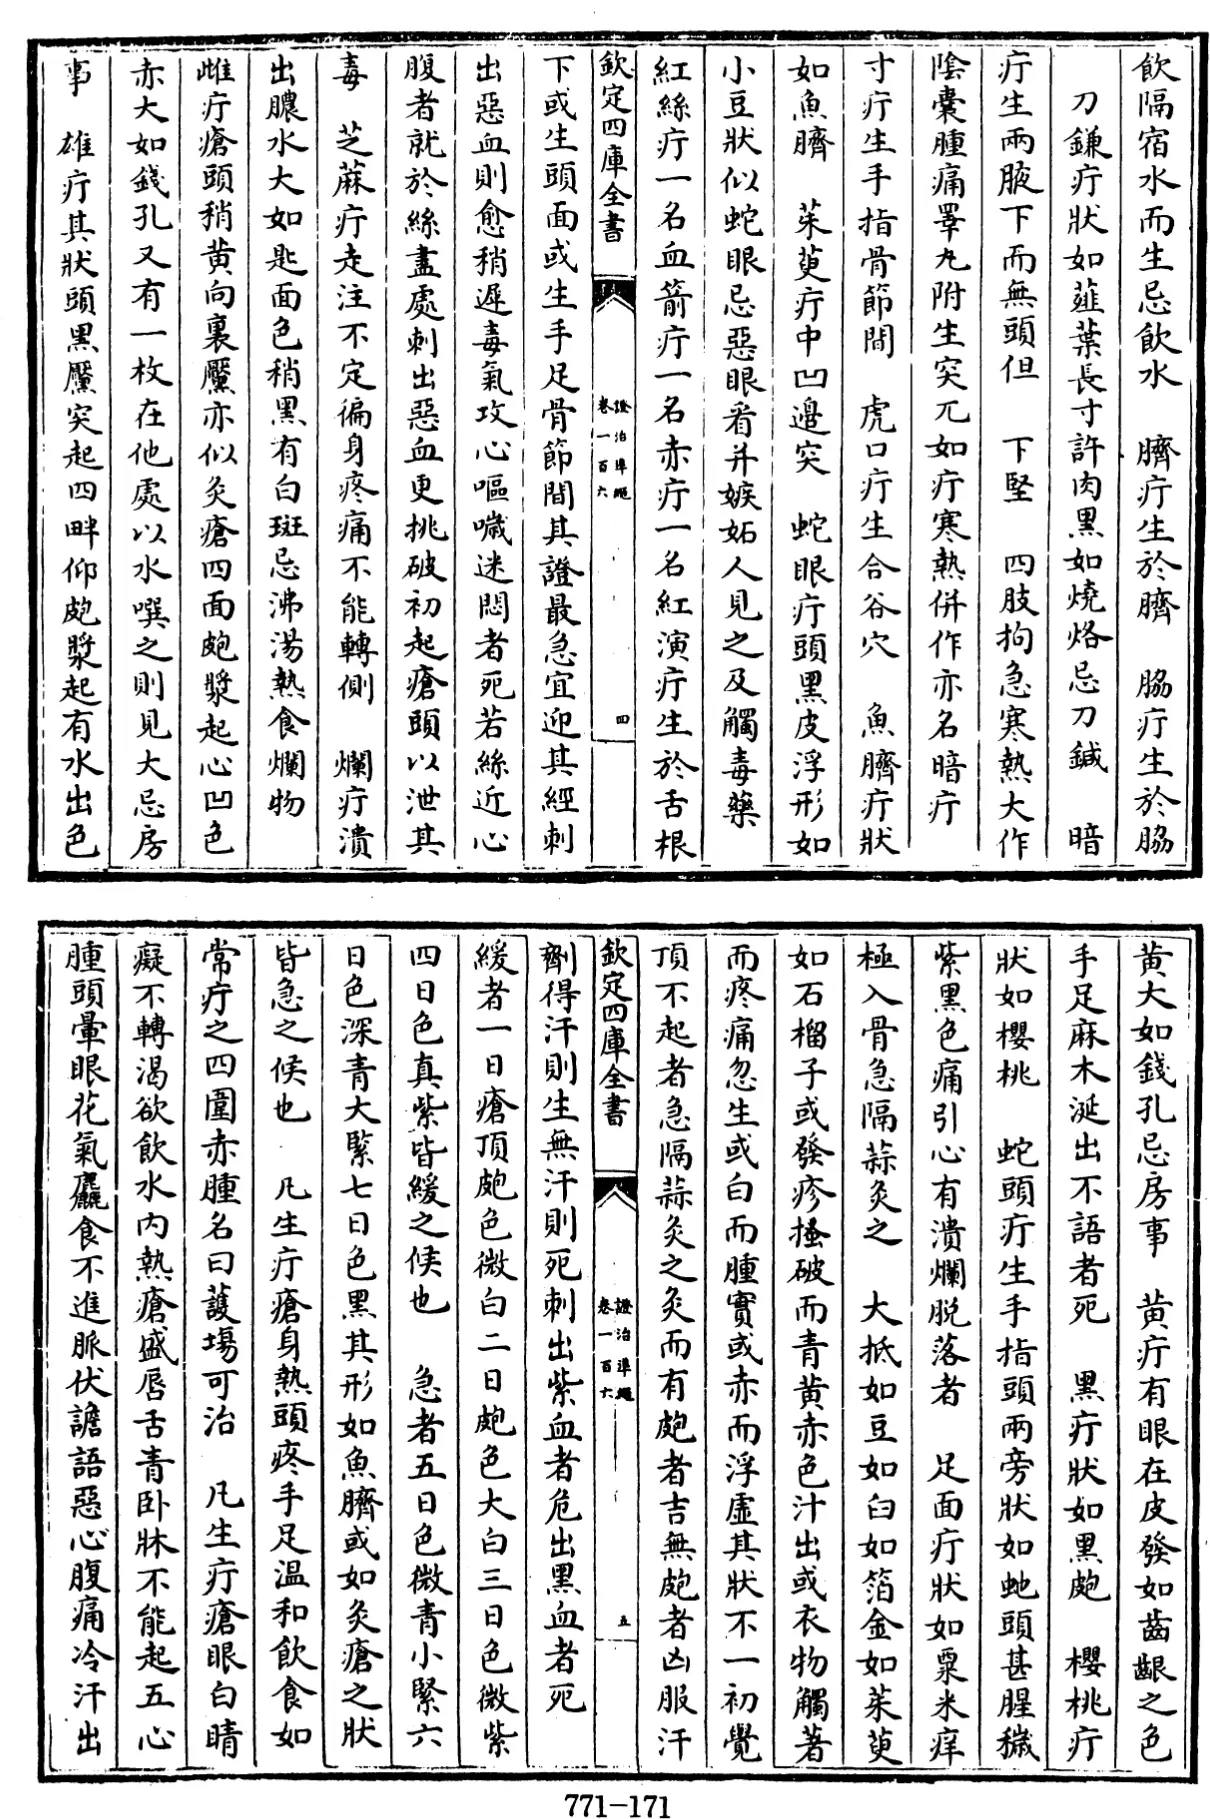 飲隔宿水而生忌飲水　臍疔生於臍　脇疔生於脇
刀鎌疔狀如薤葉長寸許肉黑如燒烙忌刀鍼　暗
疔生兩腋下而無頭但　下堅　四肢拘急寒熱大作
陰囊腫痛睪丸附生突兀如疔寒熱併作亦名暗疔
寸疔生手指骨節間　虎口疔生合谷穴　魚臍疔狀
如魚臍　茱萸疔中凹邉突　蛇眼疔頭黑皮浮形如
小豆狀似蛇眼忌惡眼看并嫉妬人見之及觸毒藥
紅絲疔一名血箭疔一名赤疔一名紅演疔生於舌根
欽定四庫全書
證治凖繩
卷一百六
四
下或生頭面或生手足骨節間其證最急宜迎其經刺
出惡血則愈稍遲毒氣攻心嘔噦迷悶者死若絲近心
腹者就於絲盡處刺出惡血更挑破初起瘡頭以泄其
毒　芝蔴疔走注不定徧身疼痛不能轉側　爛疔潰
出膿水大如匙面色稍黑有白斑忌沸湯熱食爛物
雌疔瘡頭稍黄向裏黶亦似灸瘡四面皰漿起心凹色
赤大如錢孔又有一枚在他處以水噀之則見大忌房
事　雄疔其狀頭黑黶突起四畔仰皰漿起有水出色
黄大如錢孔忌房事　黄疔有眼在皮發如齒齦之色
手足麻木涎出不語者死　黑疔狀如黑皰　櫻桃疔
狀如櫻桃　蛇頭疔生手指頭兩旁狀如虵頭甚腥穢
紫黑色痛引心有潰爛脱落者　足面疔狀如粟米痒
極入骨急隔蒜灸之　大抵如豆如臼如箔金如茱萸
如石榴子或發疹搔破而青黄赤色汁出或衣物觸著
而疼痛忽生或白而腫實或赤而浮虛其狀不一初覺
頂不起者急隔蒜灸之灸而有皰者吉無皰者凶服汗
欽定四庫全書
證治準繩
卷一百六
五
劑得汗則生無汗則死刺出紫血者危出黑血者死
緩者一日瘡頂皰色微白二日皰色大白三日色微紫
四日色真紫皆緩之候也　急者五日色微青小緊六
日色深青大緊七日色黑其形如魚臍或如灸瘡之狀
皆急之候也　凡生疔瘡身熱頭疼手足温和飲食如
常疔之四圍赤腫名曰護塲可治　凡生疔瘡眼白睛
癡不轉渴欲飲水内熱瘡盛唇舌青卧牀不能起五心
腫頭暈眼花氣麤食不進脈伏譫語惡心腹痛冷汗出
771-171